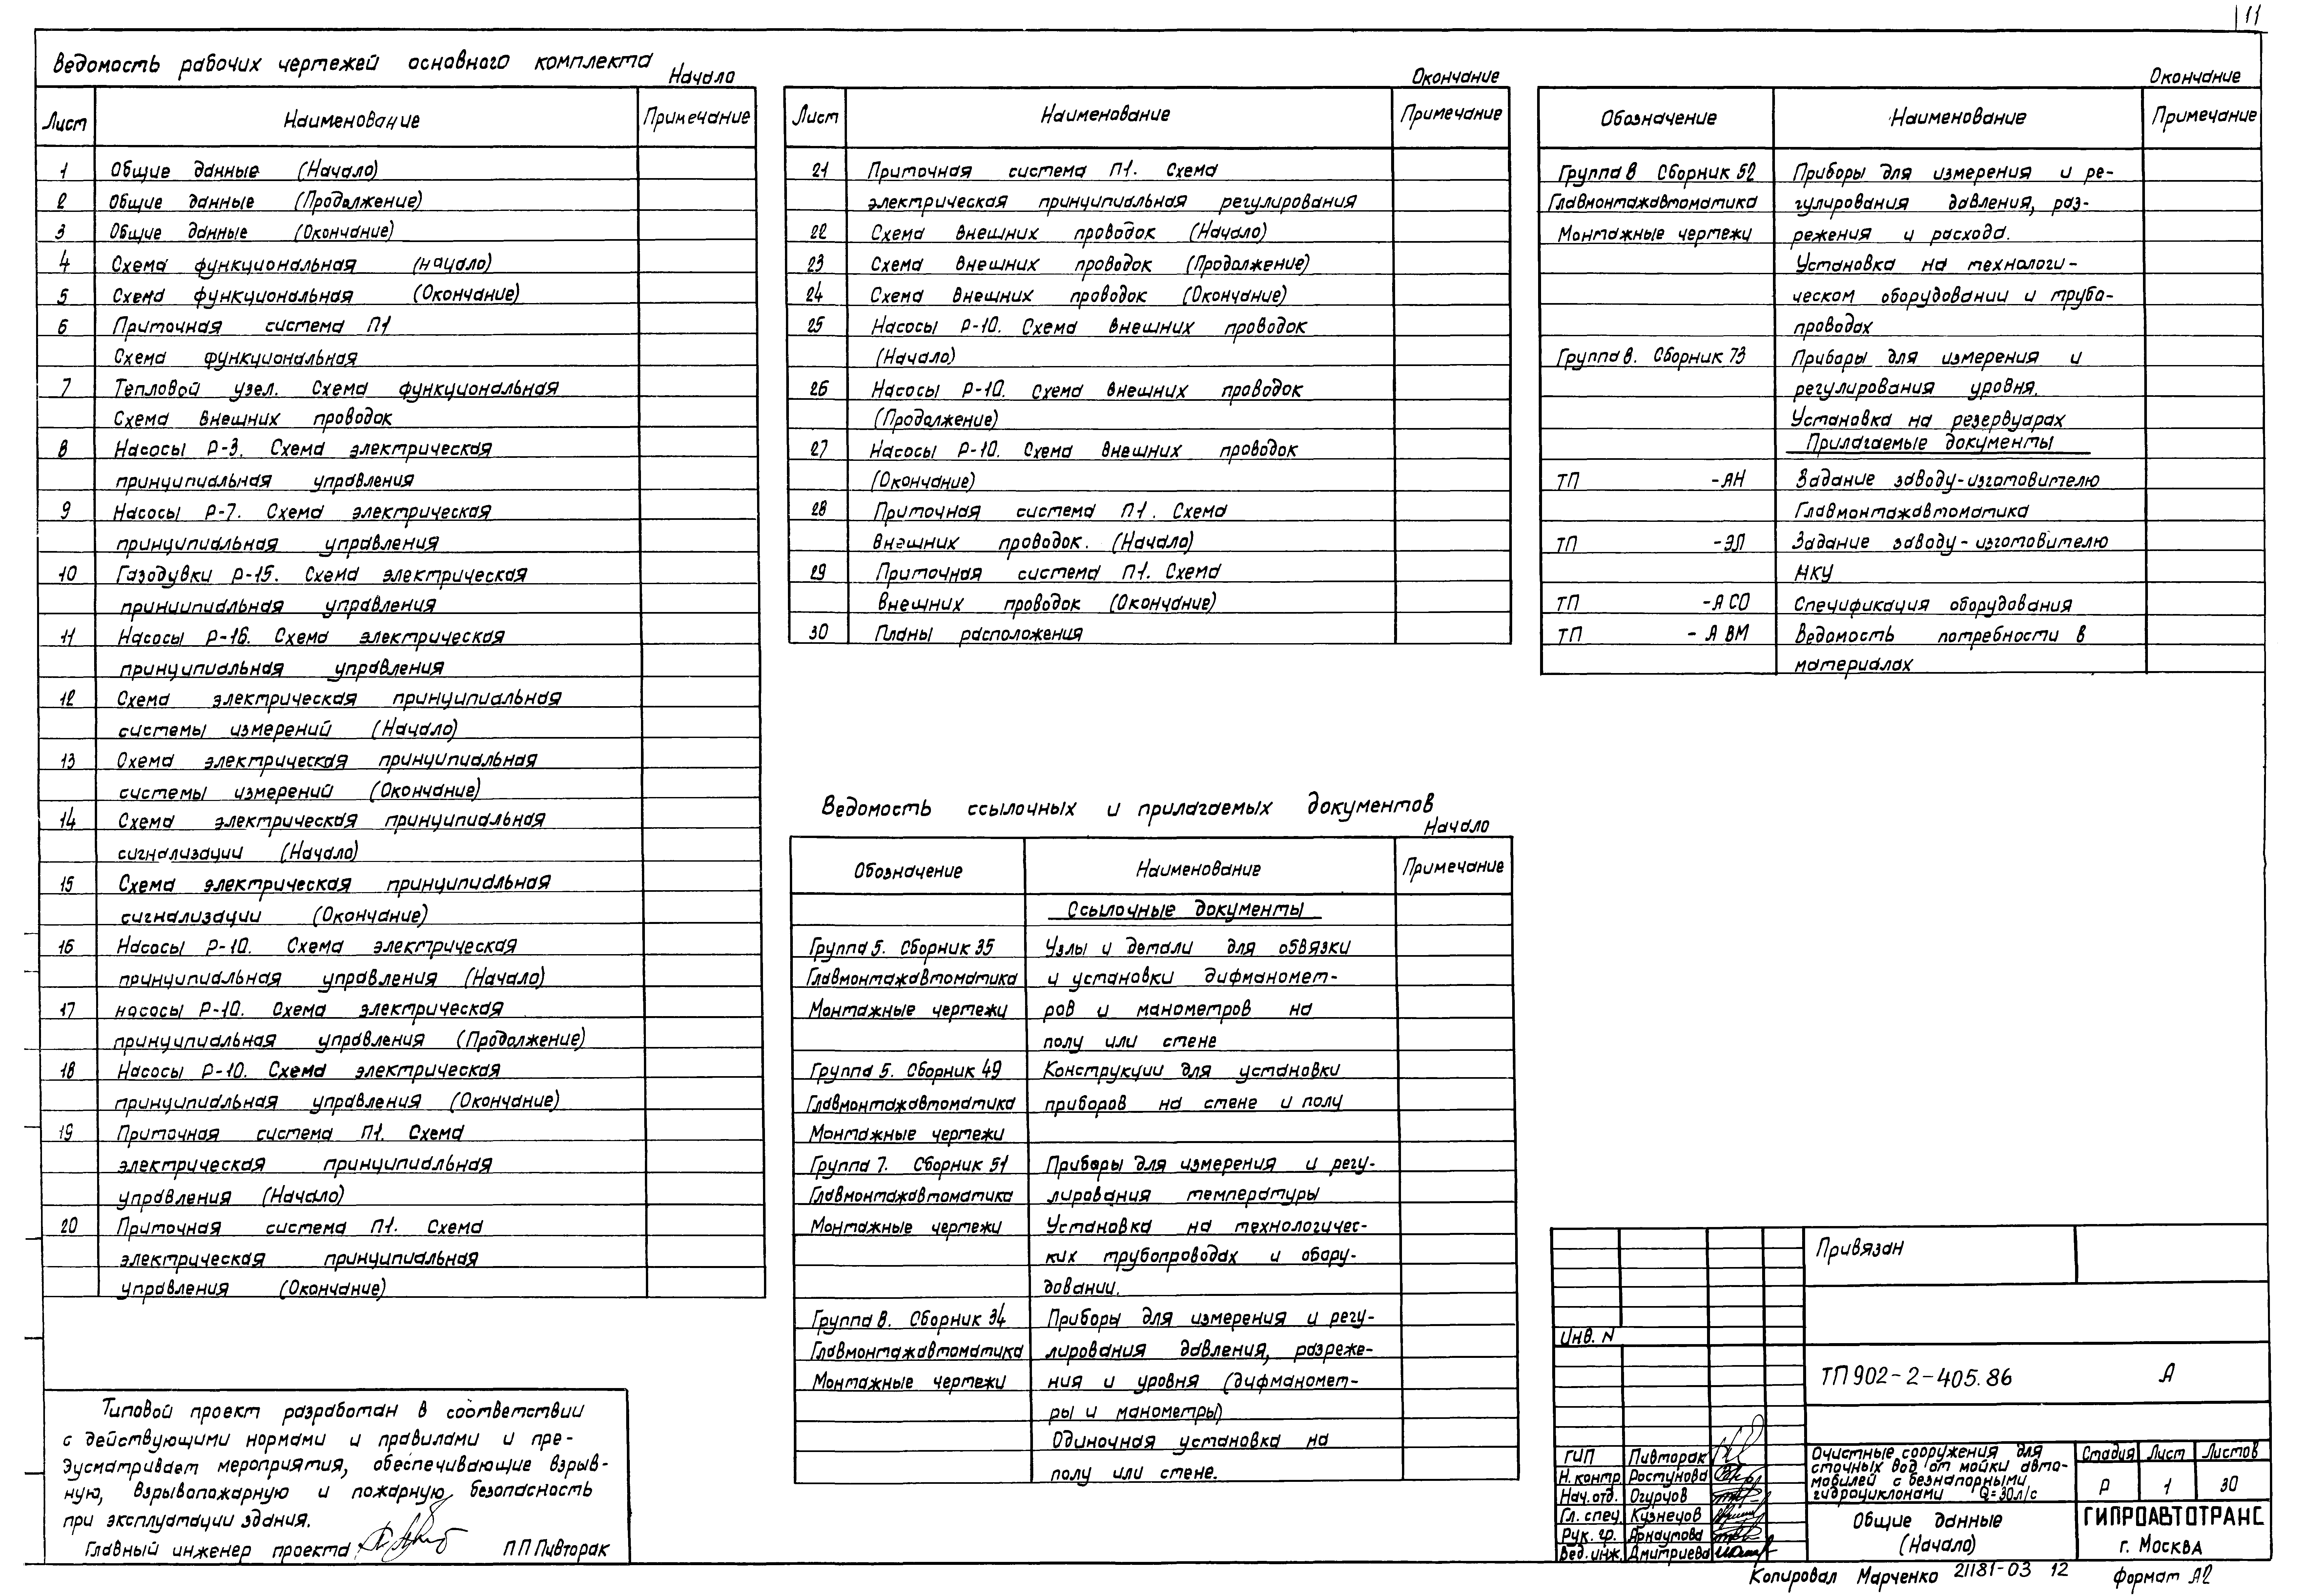 11
Ведомость рабочих чертежей основного комплекта
Начало
Лист Наименование Примечание
1 Общие данные (Начало)
2 Общие данные (Продолжение)
3 Общие данные (Окончание)
4 Схема функциональная (начало)
5 Схема функциональная (Окончание)
6 Приточная система П1
Схема функциональная
7 Тепловой узел. Схема функциональная
Схема внешних проводок
8 Насосы Р-3. Схема электрическая
принципиальная управления
9 Насосы Р-7. Схема электрическая
принципиальная управления
10 Газодувки Р-15. Схема электрическая
принципиальная управления
11 Насосы Р-16. Схема электрическая
принципиальная управления
12 Схема электрическая принципиальная
системы измерений (Начало)
13 Схема электрическая принципиальная
системы измерений (Окончание)
14 Схема электрическая принципиальная
сигнализации (Начало)
15 Схема электрическая принципиальная
сигнализации (Окончание)
16 Насосы Р-10. Схема электрическая
принципиальная управления (Начало)
17 насосы Р-10. Схема электрическая
принципиальная управления (Продолжение)
18 Насосы Р-10. Схема электрическая
принципиальная управления (Окончание)
19 Приточная система П1. Схема
электрическая принципиальная
управления (Начало)
20 Приточная система П1. Схема
электрическая принципиальная
управления (Окончание)
Типовой проект разработан в соответствии
с действующими нормами и правилами и пре-
дусматривает мероприятия, обеспечивающие взрыв-
ную, взрывопожарную и пожарную безопасность
при эксплуатации здания.
Главный инженер проекта П П Пивторак
Окончание
Лист Наименование Примечание
21 Приточная система П1. Схема
электрическая принципиальная регулирования
22 Схема внешних проводок (Начало)
23 Схема внешних проводок (Продолжение)
24 Схема внешних проводок (Окончание)
25 Насосы Р-10. Схема внешних проводок
(Начало)
26 Насосы Р-10. Схема внешних проводок
(Продолжение)
27 Насосы Р-10. Схема внешних проводок
(Окончание)
28 Приточная система П1. Схема
внешних проводок. (Начало)
29 Приточная система П1. Схема
внешних проводок (Окончание)
30 Планы расположения
Ведомость ссылочных и прилагаемых документов
Начало
Обозначение Наименование Примечание
Ссылочные документы
Группа 5. Сборник 35 Узлы и детали для обвязки
Главмонтажавтоматика и установки дифманомет-
Монтажные чертежи ров и манометров на
полу или стене
Группа 5. Сборник 49 Конструкции для установки
Главмонтажавтоматика приборов на стене и полу
Монтажные чертежи
Группа 7. Сборник 51 Приборы для измерения и регу-
Главмонтажавтоматика лирования температуры
Монтажные чертежи Установка на технологичес-
ких трубопроводах и обору-
довании.
Группа 8. Сборник 34 Приборы для измерения и регу-
Главмонтажавтоматика лирования давления, разреже-
Монтажные чертежи ния и уровня (дифманомет-
ры и манометры)
Одиночная установка на
полу или стене.
Окончание
Обозначение Наименование Примечание
Группа 8 Сборник 52 Приборы для измерения и ре-
Главмонтажавтоматика гулирования давления, раз-
Монтажные чертежи режения и расхода.
Установка на технологи-
ческом оборудовании и трубо-
проводах
Группа 8. Сборник 73 Приборы для измерения и
регулирования уровня.
Установка на резервуарах
Прилагаемые документы
ТП -АН Задание заводу-изготовителю
Главмонтажавтоматика
ТП -ЭЛ Задание заводу-изготовителю
НКУ
ТП -А СО Спецификация оборудования
ТП - А ВМ Ведомость потребности в
материалах
Привязан
Инв. N
ТП 902-2-405.86 А
ГИП Пивторак
Н.контр Ростунова
Нач.отд. Огурцов
Гл. спец. Кузнецов
Рук. гр. Арнаутова
Вед.инж. Дмитриева
Очистные сооружения для
сточных вод от мойки авто-
мобилей с безнапорными
гидроциклонами Q=30л/с
Стадия Лист Листов
Р 1 30
Общие данные
(Начало)
ГИПРОАВТОТРАНС
г. Москва
Копировал Марченко 21181-03 12 Формат А2